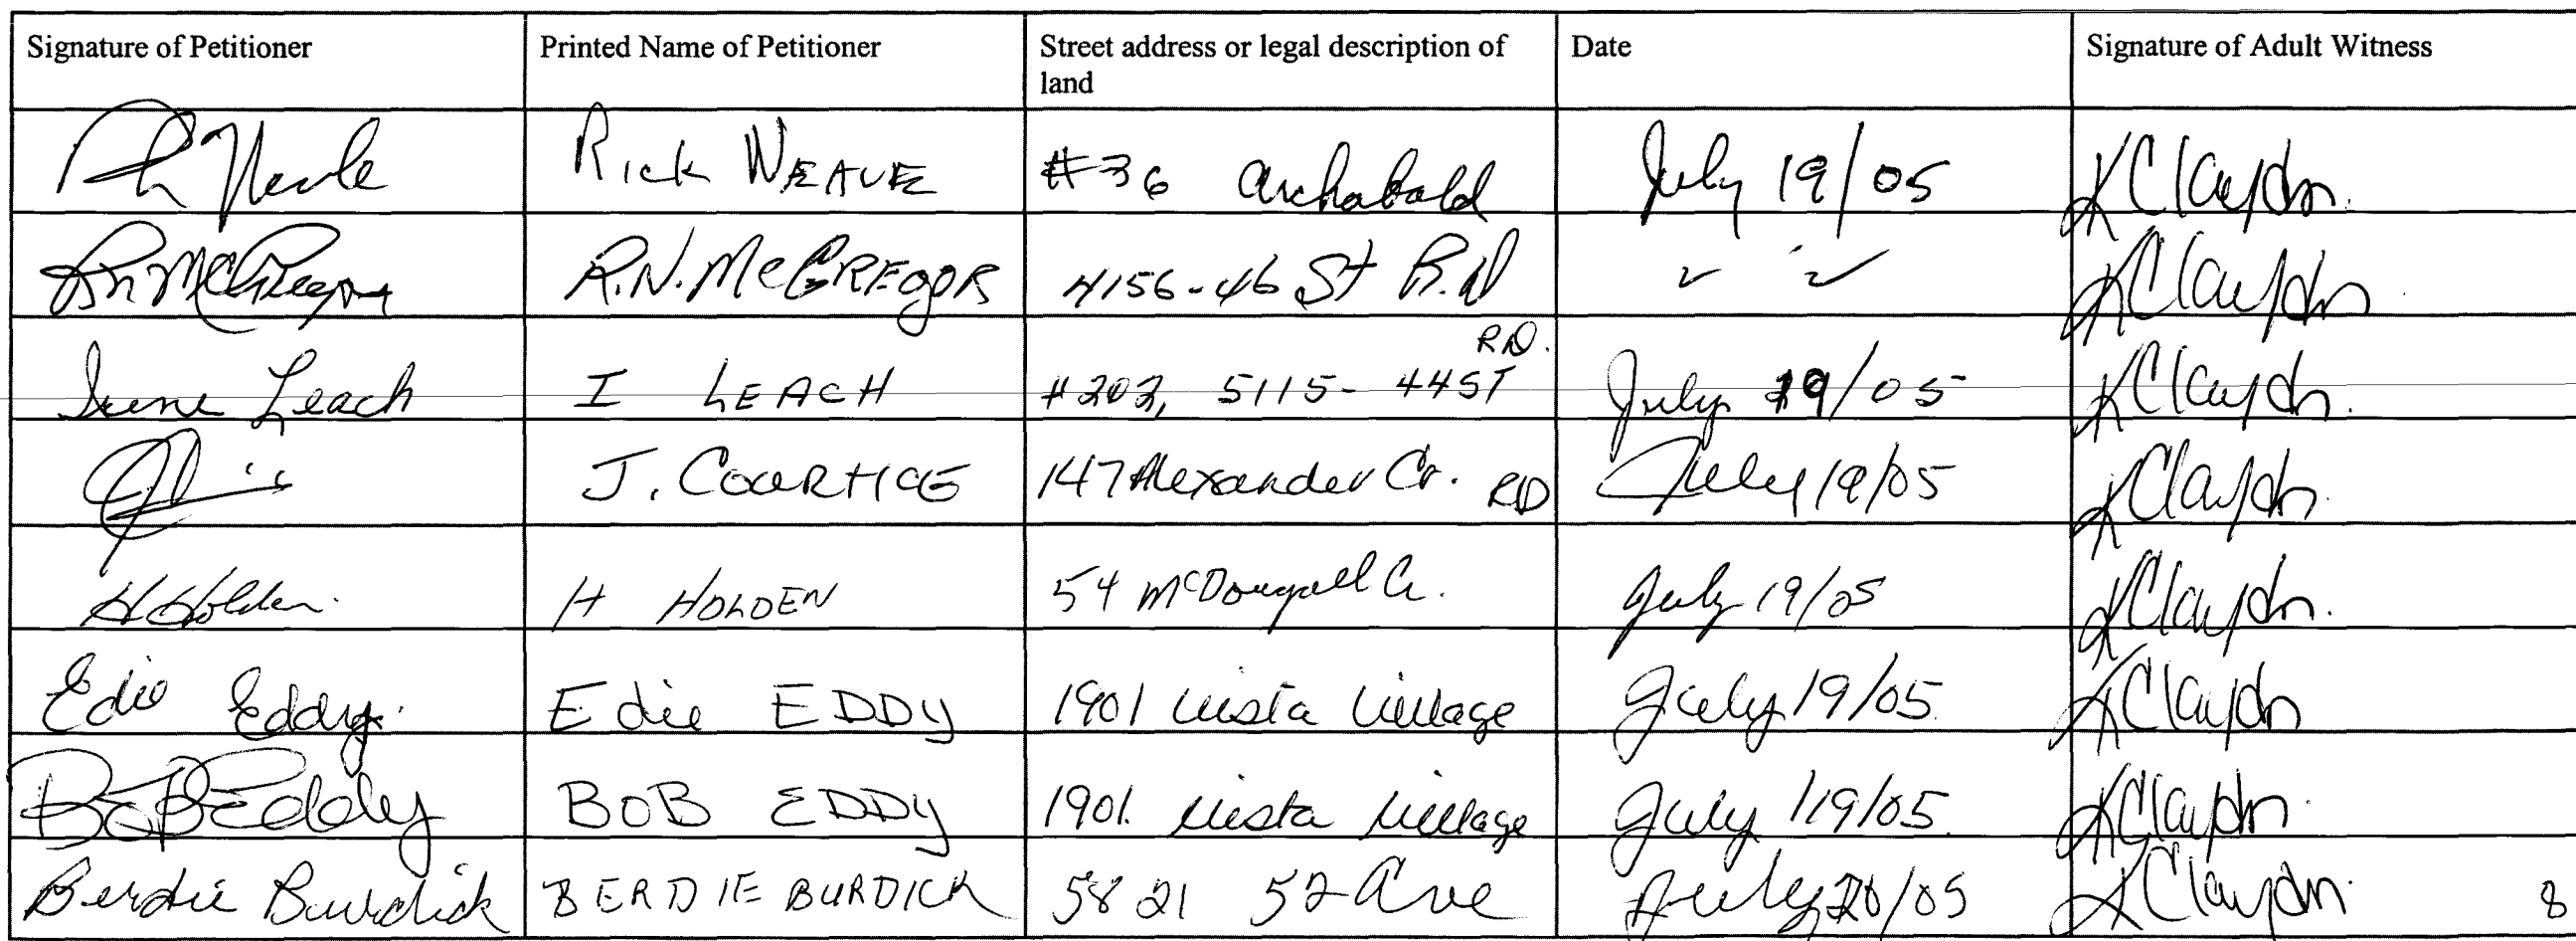 Signature of Petitioner Printed Name of Petitioner Street address or legal description of land Date Signature of Adult Witness
Rick WEAVE #36 Archabald July 19/05 KClaydn.
RN McGregor R.N. McGREgOR 4156-46 St R.D KClaydn
Irene Leach I LEACH #202, 5115- 44ST RD. July 19/05 KClaydn.
J. COURTICE 147 Alexander Cr. RD July 19/05 KClaydn.
H Holden. H HOLDEN 54 McDougall Cr. July 19/05 KClaydn.
Edie Eddy. Edie EDDY 1901 Vista Village July 19/05. KClaydn
Bob Eddy BOB EDDY 1901. Vista Village July 119/05. KClaydn
Berdie Burdick BERDIE BURDICK 5821 52 Ave July 20/05 KClaydn. 8